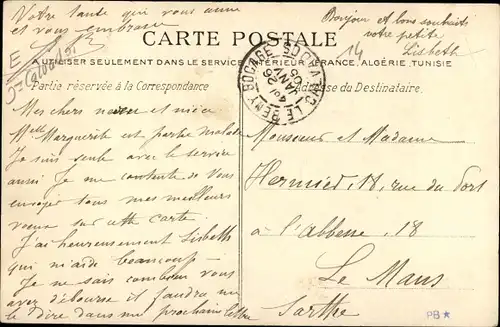 Votre tante qui vous aime
et vous embrasse
Bonjour et bons souhaits
votre petite
Lisbeth
14
CARTE POSTALE
A UTILISER SEULEMENT DANS LE SERVICE INTÉRIEUR (FRANCE, ALGÉRIE, TUNISIE
Partie réservée à la Correspondance
Adresse du Destinataire.
LE BENY BOCAGE
CALVADOS
JANV
05
Mes chers neveu et nièce
Melle Marguerite est partie
Je suis seule avec le service
aussi Je me contente de Vous
envoyer tous mes meilleurs
voeux sur cette carte.
J'ai heureusement Lisbeth
qui m'aide beaucoup –
Je ne sais combien vous
avez déboursé il faudra me
le dire dans une prochaine lettre
Monsieur et Madame
Hermier, 18, rue du Port
à l'abbesse, 18
Le Mans
Sarthe
PB★